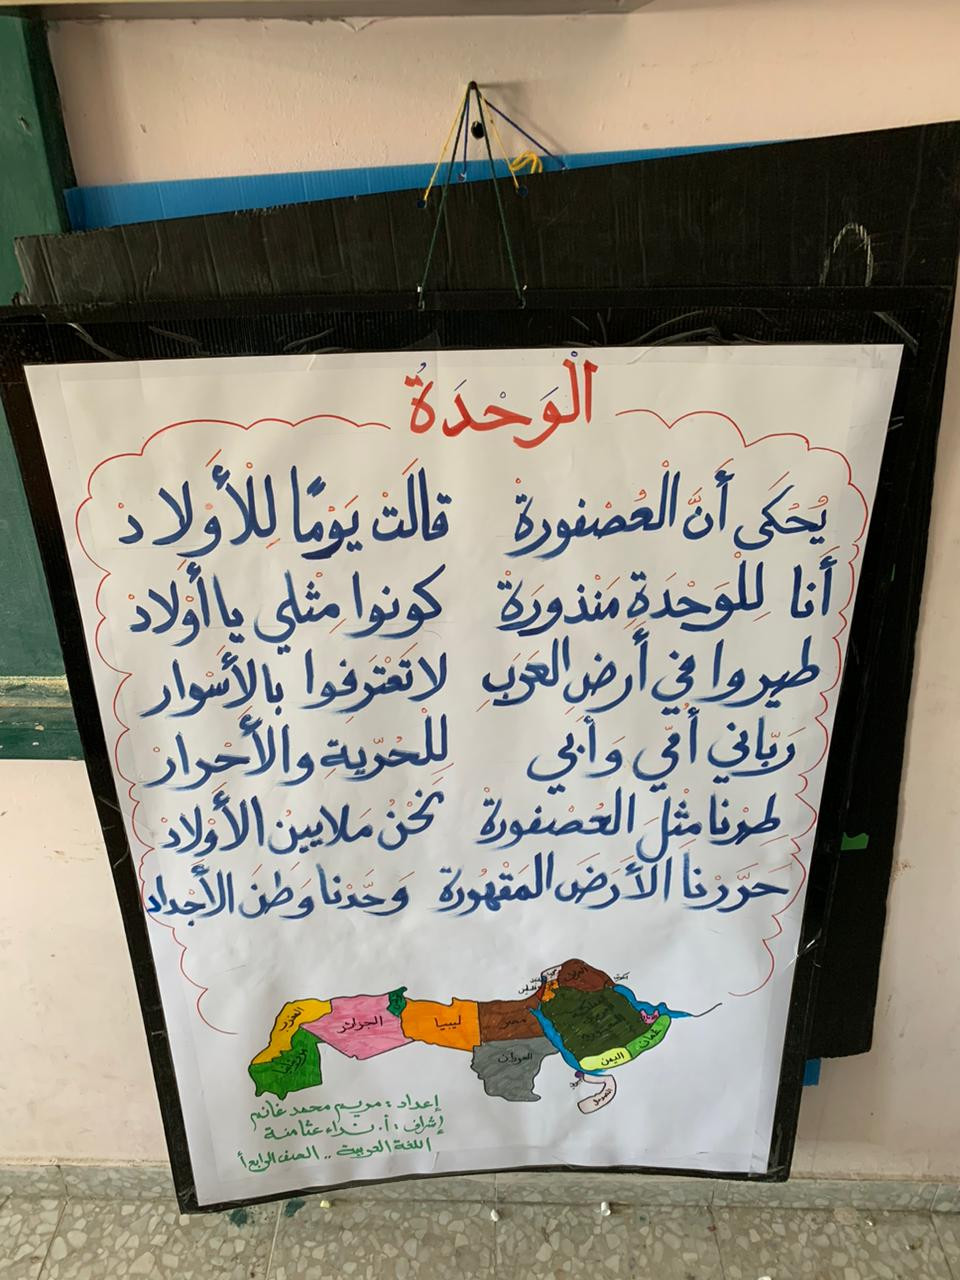 الْوَحْدَةُ
يُحْكَى أَنَّ الْعُصْفورةْ قالَتْ يَوْمًا لِلْأَوْلادْ
أَنا لِلْوَحْدَةِ مَنْذورَةْ كونوا مِثْلي يا أَوْلادْ
طيروا في أَرْضِ العَرَبِ لا تَعْتَرِفوا بِالأَسْوار
رَبّاني أُمّي وَأَبي لِلْحُرّيةِ والأَحْرارْ
طِرْنا مِثْلَ العُصْفورةْ نَحْنُ مَلايينُ الأَوْلادْ
حَرَّرْنا الأَرْضَ المَقْهورة وَحَّدْنا وَطَنَ الأَجْداد
العراق
الكويت
المغرب
الجزائر
ليبيا
مصر
موريتانيا
السودان
اليمن
عُمان
الصومال
إعداد : مريم محمد غانم
إشراف : أ. نداء عثامنة
اللغة العربية .. الصف الرابع أ